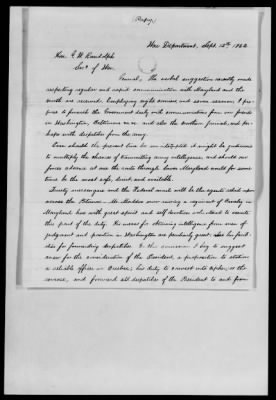 (Copy)
War Department, Sept. 15th 1862.
Hon. G. W. Randolph
Secy of War
General, The verbal suggestion recently made
respecting regular and rapid communication with Maryland and the
north are renewed. Employing eight armed and some unarmed I pro-
pose to furnish the Government daily with communications from our friends
in Washington, Baltimore &c. &c and also the Northern journals, and per-
haps with despatches from the army.
Even should the present line be an interrupted it might be judicious
to multiply the chances of transmitting army intelligence, and should our
forces advance at once the route through lower Maryland would for some
time be the most safe, direct and available.
Trusty messengers and the Federal mail will be the agents relied upon
across the Potomac. Mr. Sheldon now raising a regiment of Cavalry in
Maryland has with great spirit and self devotion volunteered to execute
this part of the duty. His means for obtaining intelligence from men of
judgment and position in Washington are peculiarly great. Also his facil-
ities for forwarding despatches. In this connexion I beg to suggest
even for the consideration of the President, a proposition to station
a reliable officer in Quebec; his duty to convert into cypher, or the
reverse, and forward all despatches of the President to and from